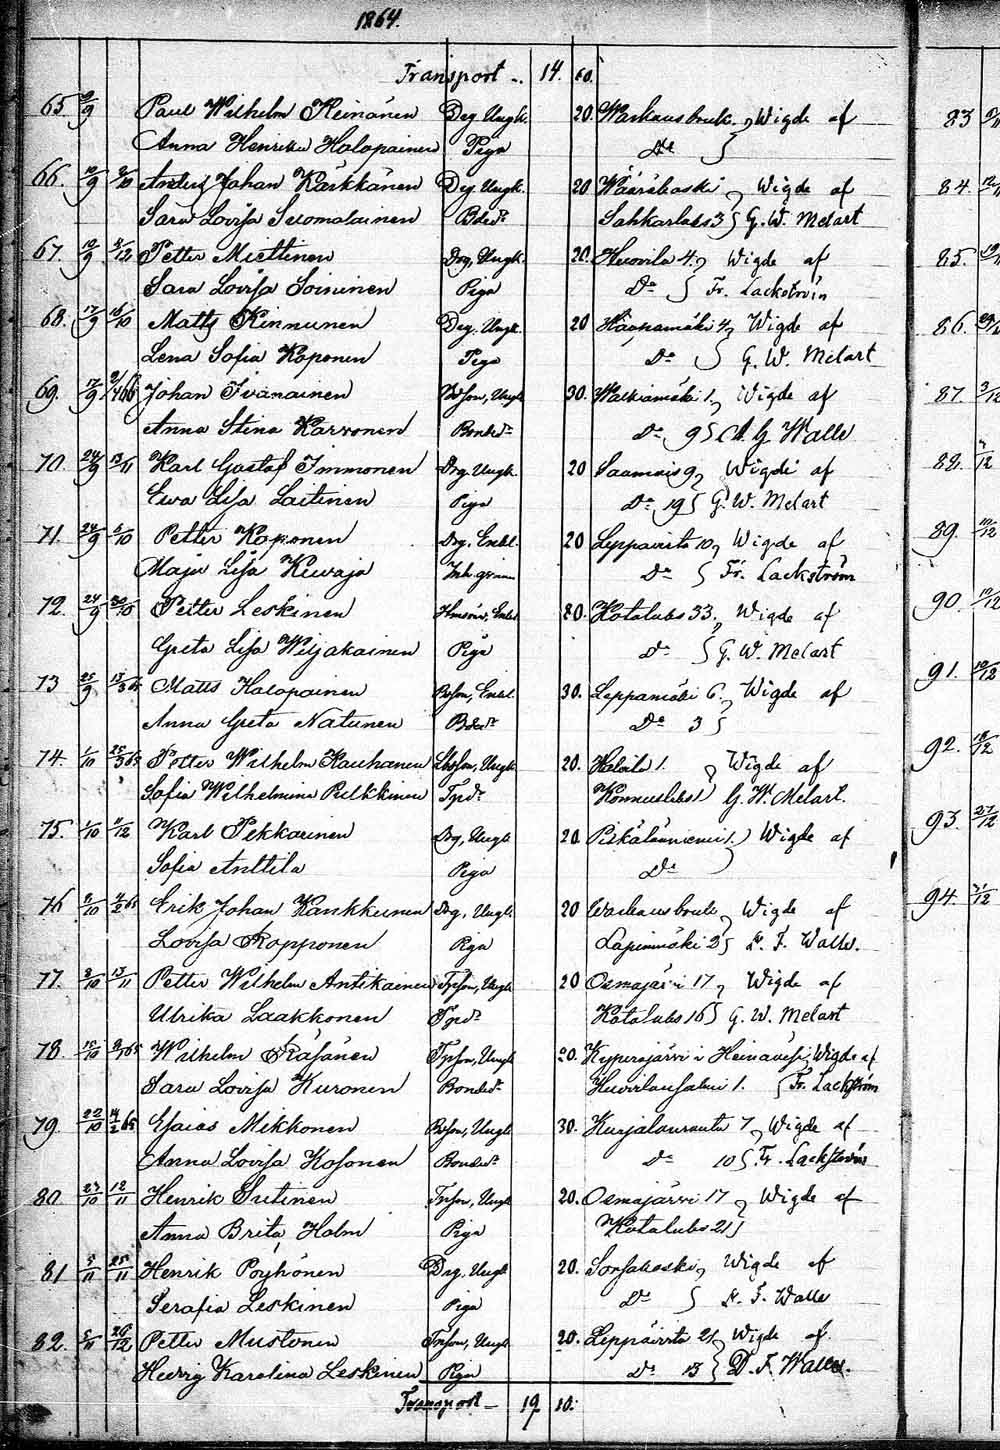 1864.
Transport - 14. 60.
65 10/9 Paul Wilhelm Keinänen Drg, Ungk. 20. Warkausbruk Wigde af
Anna Henrika Holopainen Piga Do
66. 10/9 9/10 Anders Johan Kärkkänen Drg. Ungk. 20 Wääräkoski Wigde af
Sara Lovisa Suomalainen Bdedr Sahkarlaks 3 G. W. Melart
67. 10/9 8/12 Petter Miettinen Drg, Ungk. 20. Kuvila 4. Wigde af
Sara Lovisa Soininen Piga Do Fr. Lackström
68. 17/9 16/10 Matts Kinnunen Drg. Ungk. 20 Haapamäki 4 Wigde af
Lena Sofia Koponen Piga Do G. W. Melart
69. 17/9 Johan Ivanainen Bdson, Ungk 30. Walkiamäki 1. Wigde af
Anna Stina Karvonen Bondedr Do 9 G Walle
70. 24/9 13/11 Karl Gustaf Immonen Drg. Ungk 20 Saamais 9 Wigde af
Ewa Lisa Laitinen Piga Do 19 G. W. Melart
71. 24/9 5/10 Petter Koponen Drg, Enkl. 20 Leppävirta 10 Wigde af
Maja Lisa Kuvaja Inh. Do Fr. Lackström
72. 24/9 30/10 Petter Leskinen Enkl 20. Kotalaks 33. Wigde af
Greta Lisa Wiljakainen Piga Do G. W. Melart
73 25/9 Matts Holopainen Bdson, Enkl. 30. Leppämäki 6. Wigde af
Anna Greta Natunen Bdedr Do 3
74. 1/10 25/3 65 Petter Wilhelm Kauhanen Ungk 20. 1. Wigde af
Sofia Wilhelmina Pulkkinen Tpdr Konnuslaks 1 G. W. Melart.
75. 1/10 11/12 Karl Pekkarinen Drg, Ungk 20 1. Wigde af
Sofia Anttila Piga Do
76 2/10 4/2 65 Erik Johan Karkkunen Drg, Ungk. 20 Warkausbruk Wigde af
Lovisa Ropponen Piga Lapinmäki 2 D. F. Walle.
77. 2/10 13/11 Petter Wilhelm Antikainen Tpson, Ungk 20 Osmajärvi 17 Wigde af
Ulrika Laakkonen Tpdr Kotalaks 16 G. W. Melart
78. 15/10 65 Wilhelm Räsänen Tpson, Ungk 20. Kyperojärvi i Heinävesi Wigde af
Sara Lovisa Kuronen Bondedr 1. Fr. Lackström
79. 22/10 14/2 65 Esaias Mikkonen Bdson, Ungk 30. Kurjalaranta 7 Wigde af
Anna Lovisa Kosonen Bondedr Do 10 Fr. Lackström
80. 23/10 12/11 Henrik Sutinen Tpson, Ungk 20. Osmajärvi 17 Wigde af
Anna Brita Holm Piga Kotalaks 21
81 5/11 25/11 Henrik Pöyhönen Drg, Ungk 20. Sorsakoski Wigde af
Serafia Leskinen Piga Do D. F. Walle
82. 5/11 26/12 Petter Mustonen Torson, Ungk. 20. Leppävirta 21 Wigde af
Hedvig Karolina Leskinen Piga Do 13 D. F. Walle.
Transport - 19 10.
83
84.
85.
86.
87.
88.
89.
90.
91.
92.
93.
94.